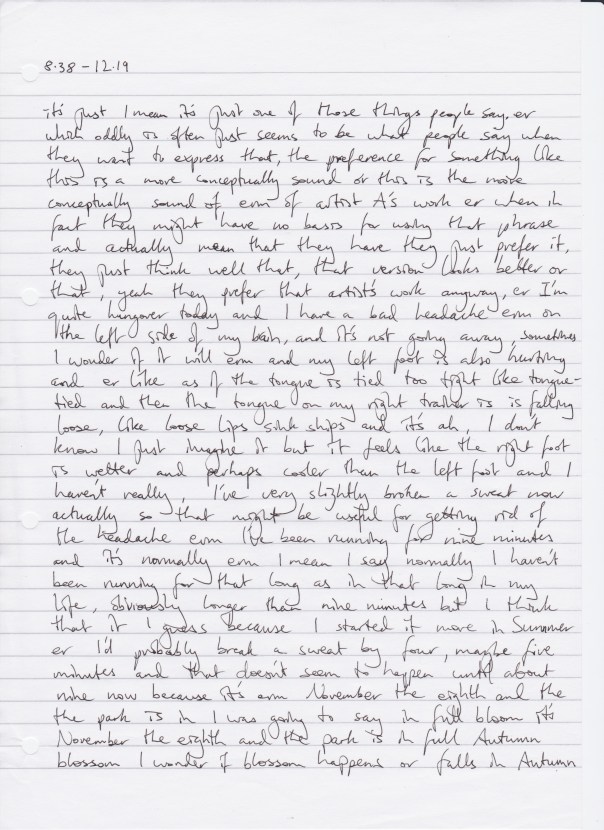 8.38 – 12.19
it's just I mean it's just one of those things people say, er
which oddly is often just seems to be what people say when
they want to express that, the preference for something like
this is a more conceptually sound or this is the more
conceptually sound of erm of artist A's work er when in
fact they might have no basis for using that phrase
and actually mean that they have they just prefer it,
they just think well that, that version looks better or
that, yeah they prefer that artist's work anyway, er I'm
quite hungover today and I have a bad headache erm on
the left side of my brain, and it's not going away, sometimes
I wonder if it will erm and my left foot is also hurting
and er like as if the tongue is tied too tight like tongue-
tied and then the tongue on my right trainer is is falling
loose, like loose lips sink ships and it's ah, I don't
know I just imagine it but it feels like the right foot
is wetter and perhaps cooler than the left foot and I
haven't really, I've very slightly broken a sweat now
actually so that might be useful for getting rid of
the headache erm I've been running for nine minutes
and it's normally erm I mean I say normally I haven't
been running for that long as in that long in my
life, obviously longer than nine minutes but I think
that it I guess because I started it more in Summer
er I'd probably break a sweat by four, maybe five
minutes and that doesn't seem to happen until about
nine now because it's erm November the eighth and the
the park is in I was going to say in full bloom it's
November the eighth and the park is in full Autumn
blossom I wonder if blossom happens or falls in Autumn